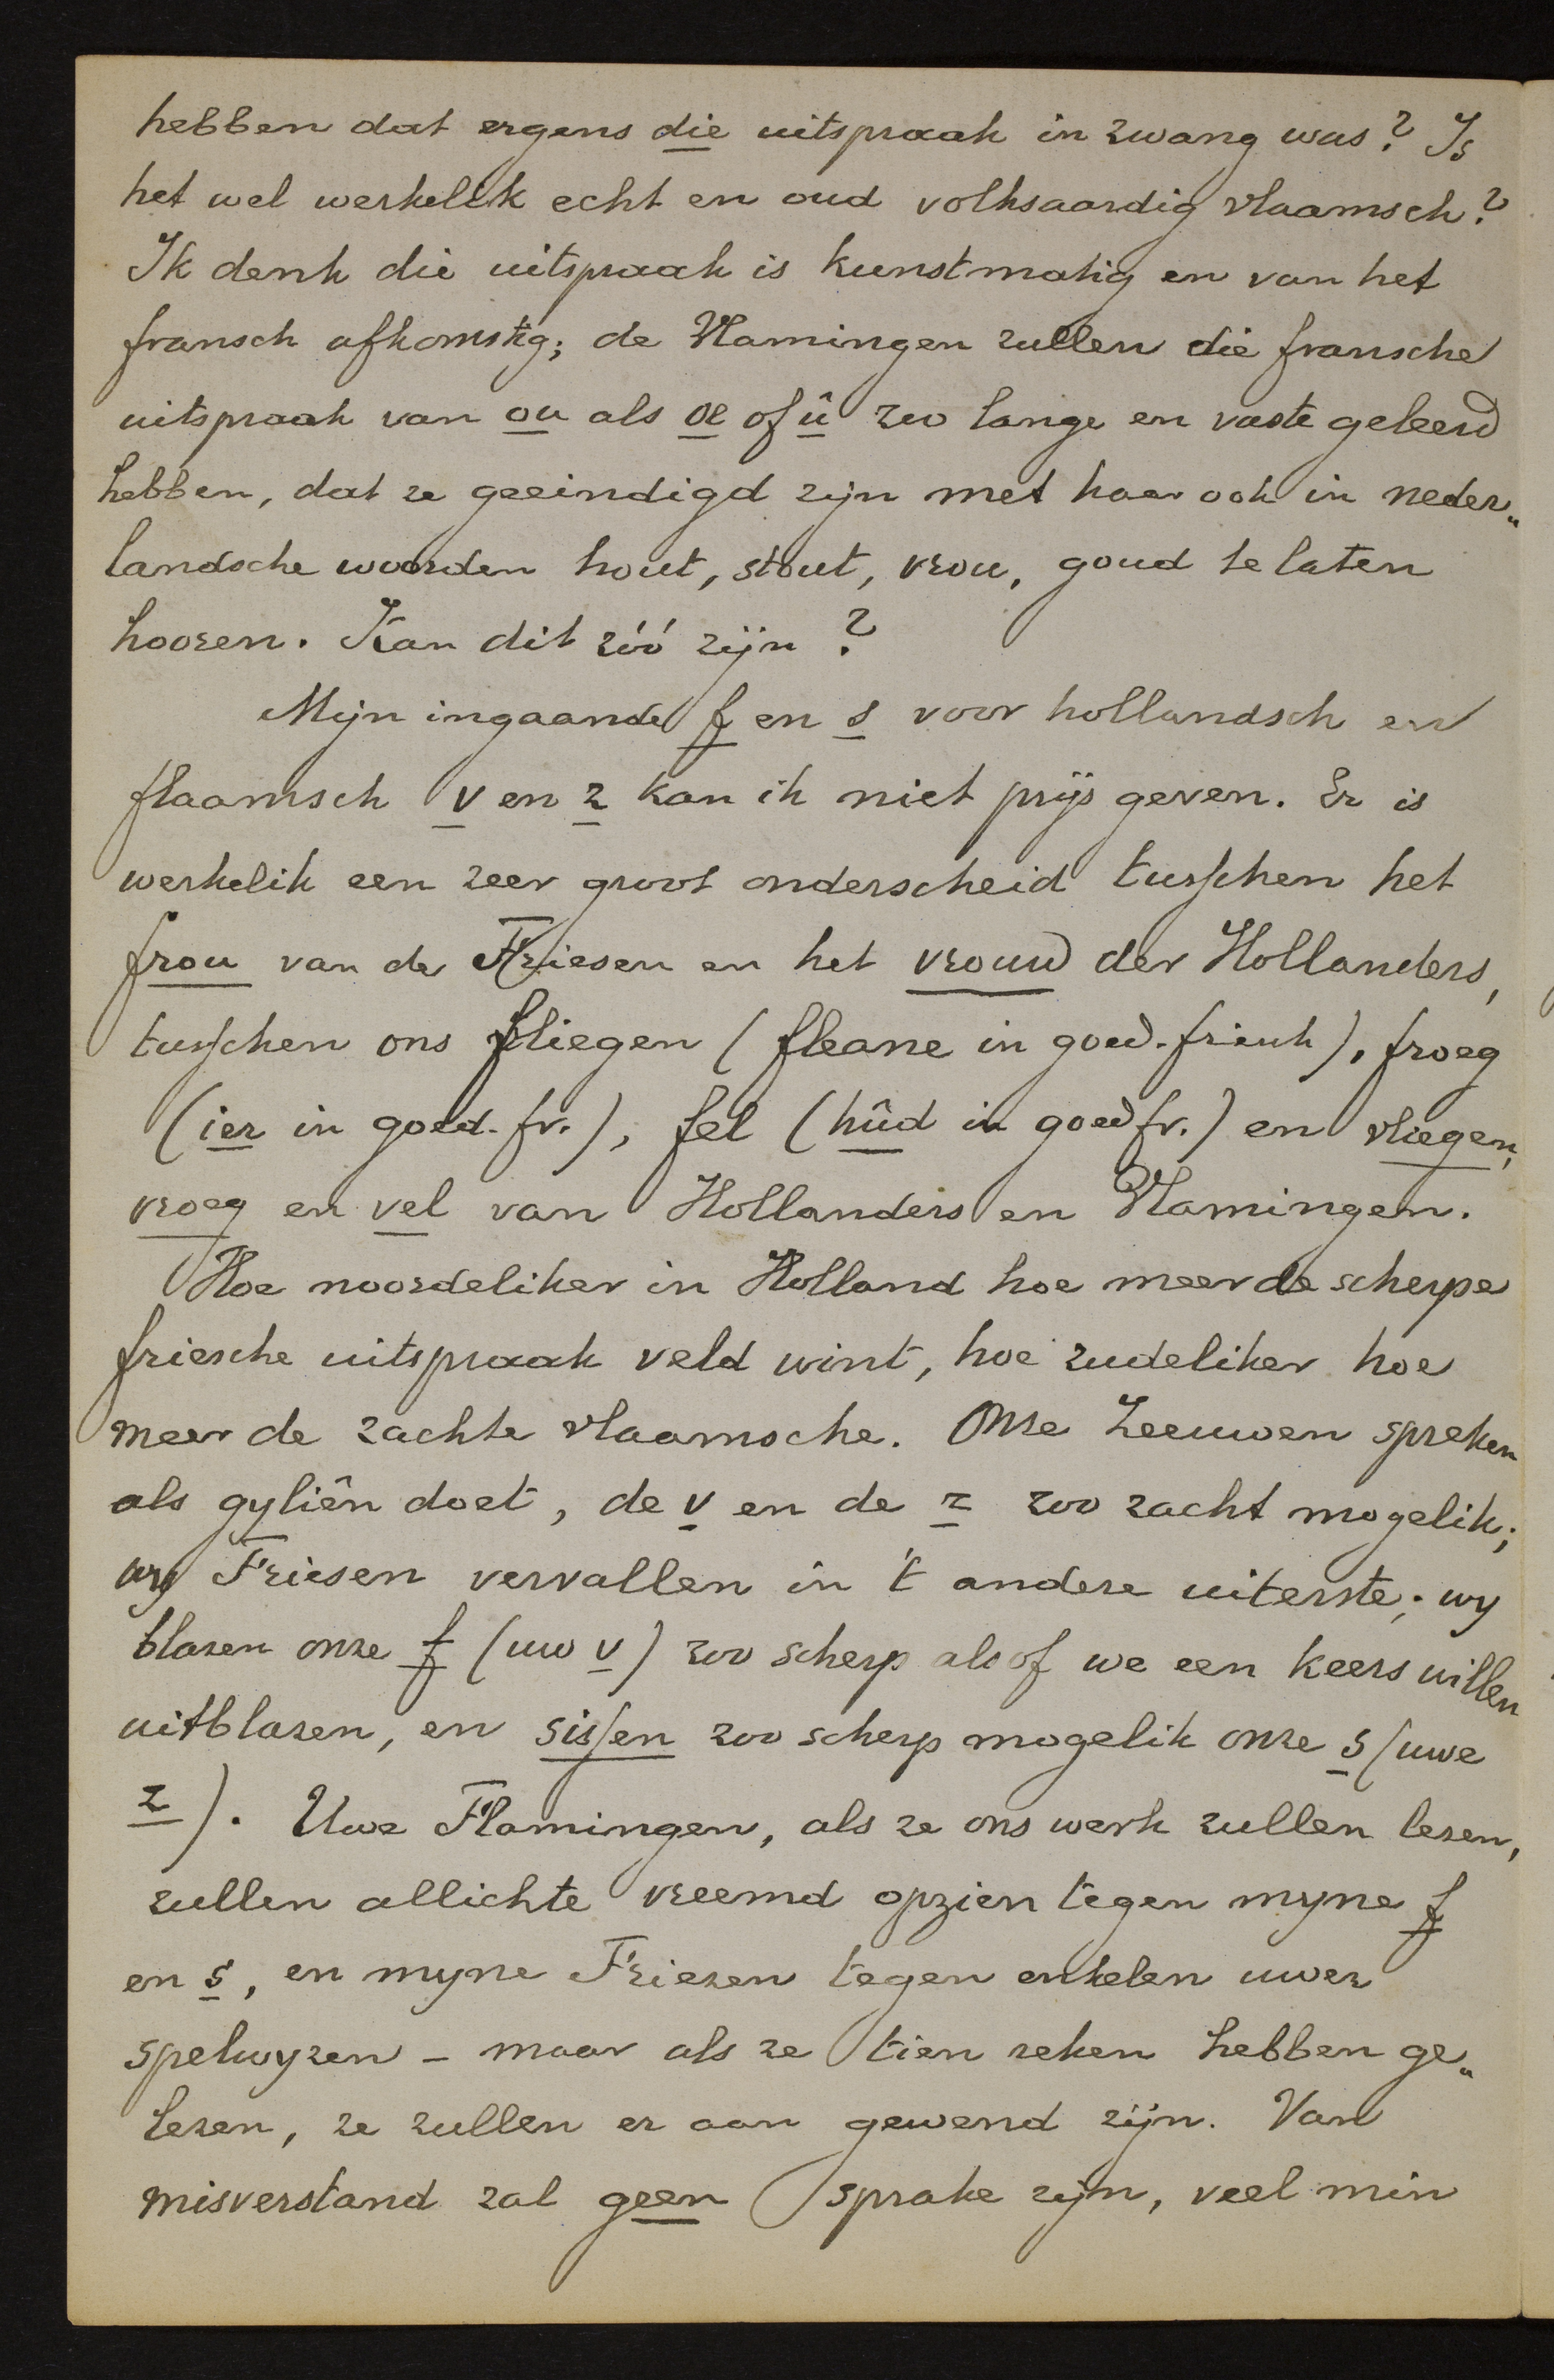 hebben dat ergens die uitspraak in zwang was? Is
het wel werkelik echt en oud volksaardig vlaamsch?
Ik denk die uitspraak is kunstmatig en van het
fransch afkomstig; de Vlamingen zullen die fransche
uitspraak van ou als oe of û zoo lange en vaste geleerd
hebben, dat ze geeindigd zijn met haar ook in neder„
landsche woorden hout, stout, vrou, goud te laten
hooren. Kan dit zóó zijn?
Mijn ingaande f en s voor hollandsch en
flaamsch v en z kan ik niet prijs geven. Er is
werkelik een zeer groot onderscheid tusschen het
frou van de Friesen en het vrouw der Hollanders,
tusschen ons fliegen (fleane in goed-friesch), froeg
(ier in goed-fr.), fel (hûd in goed fr.) en vliegen,
vroeg en vel van Hollanders en Vlamingen.
Hoe noordeliker in Holland hoe meer de scherpe
friesche uitspraak veld wint, hoe zudeliker hoe
meer de zachte vlaamsche. Onze Zeeuwen spreken
als gyliên doet, de v en de z zoo zacht mogelik;
wy Friesen vervallen in 't andere uiterste; wy
blazen onze f (uw v) zoo scherp alsof we een keers willen
uitblazen, en sissen zoo scherp mogelik onze s (uwe
z). Uwe Flamingen, als ze ons werk zullen lezen,
zullen allichte vreemd opzien tegen myne f
en s, en myne Friezen tegen enkelen uwer
spelwyzen - maar als ze tien reken hebben ge„
lezen, ze zullen er aan gewend zijn. Van
misverstand zal geen sprake zijn, veel min